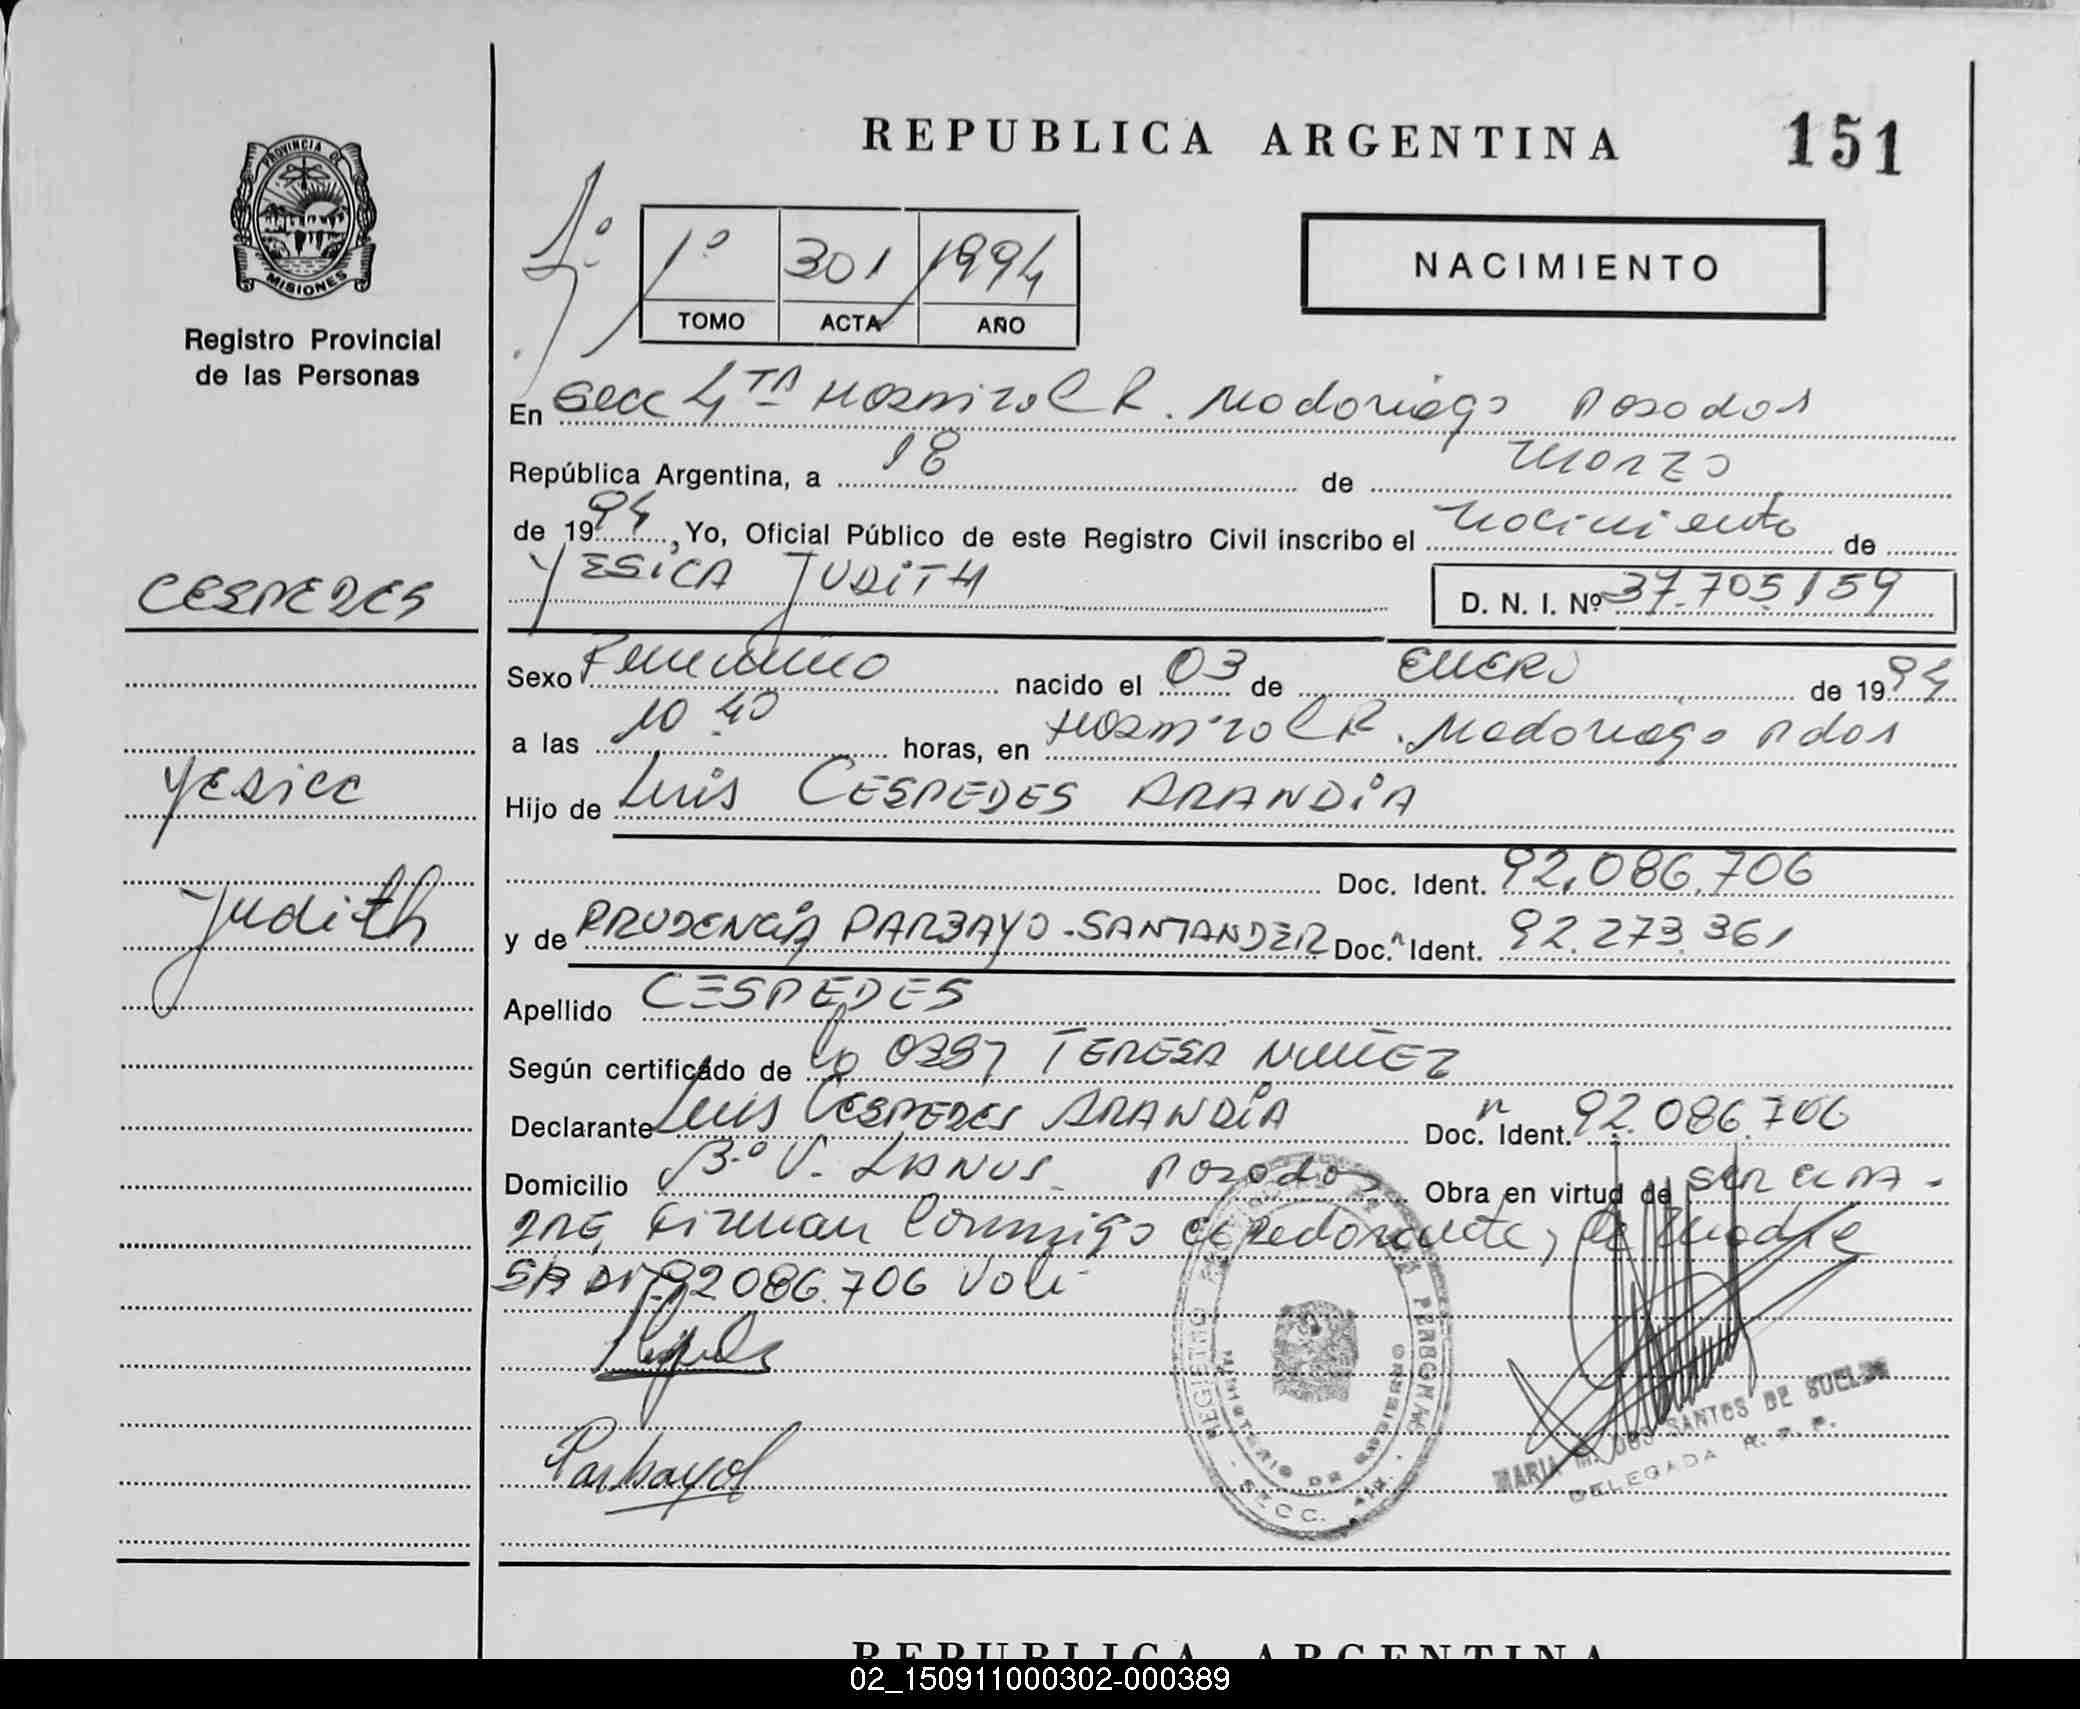 REPUBLICA ARGENTINA 151
PROVINCIA DE
MISIONES
Registro Provincial
de las Personas
1º 301 1994
TOMO ACTA AÑO
NACIMIENTO
En Secc 4TA Hospital R. Madariaga Posadas
República Argentina, a 18 de Marzo
de 1994, Yo, Oficial Público de este Registro Civil inscribo el nacimiento de
YESICA JUDITH D. N. I. Nº 37.705.159
CESPEDES
Yesica
Judith
Sexo Femenino nacido el 03 de ENERO de 1994
a las 10 40 horas, en Hospital R. Madariaga Pdas
Hijo de Luis CESPEDES ARANDIA
Doc. Ident. 92.086.706
y de PRUDENCIA PARBAYO-SANTANDER Doc. Ident. 92.273.361
Apellido CESPEDES
Según certificado de TERESA NUÑEZ
Declarante Luis CESPEDES ARANDIA Doc. Ident. 92.086.706
Domicilio Bº V. LANUS - Posadas Obra en virtud de SER EL PA-
DRE, Firman Conmigo el Declarante, la Madre
92086.706 Vale
Parbayo
MARIA M. DOS SANTOS DE SUELDO
DELEGADA R. P. P.
REPUBLICA ARGENTINA
02_150911000302-000389